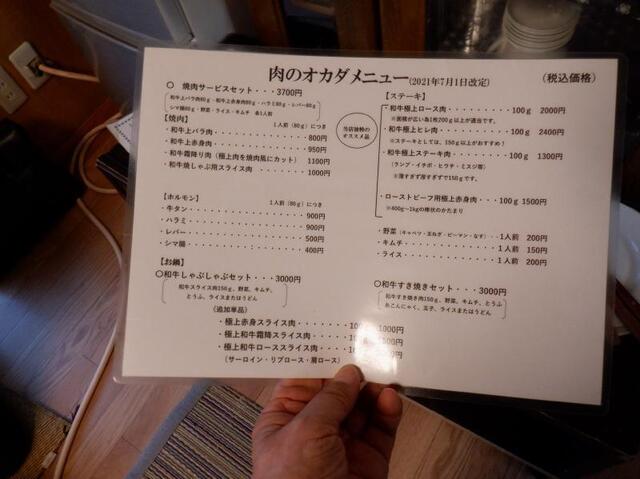 肉のオカダメニュー(2021年7月1日改定)
(税込価格)
〇 焼肉サービスセット・・・3700円
和牛上バラ肉80g・和牛上赤身肉80g・ハラミ80g・レバー80g
シマ腸80g・野菜・ライス・キムチ 各1人前
【焼肉】 1人前(80g)につき
・和牛上バラ肉・・・800円
・和牛上赤身肉・・・950円
・和牛霜降り肉(極上肉を焼肉風にカット) 1100円
・和牛焼しゃぶ用スライス肉・・・1000円
【ホルモン】 1人前(80g)につき
・牛タン・・・900円
・ハラミ・・・900円
・レバー・・・500円
・シマ腸・・・400円
【お鍋】
〇和牛しゃぶしゃぶセット・・・3000円
和牛スライス肉150g、野菜、キムチ、
とうふ、ライスまたはうどん
(追加単品)
・極上赤身スライス肉・・・1000円
・極上和牛霜降スライス肉・・・
・極上和牛ローススライス肉・・・
(サーロイン・リブロース・肩ロース)
当店独特の
オススメ品
【ステーキ】
・和牛極上ロース肉・・・100g 2000円
※面積が広い為1枚200g以上が適当です。
・和牛極上ヒレ肉・・・100g 2400円
※ステーキとしては、150g以上がおすすめ!
・和牛極上ステーキ肉・・・100g 1300円
(ランプ・イチボ・ヒウチ・ミスジ等)
※薄すぎず厚すぎずで150gです。
・ローストビーフ用極上赤身肉・・100g 1500円
※400g~1kgの棒状のかたまり
・野菜(キャベツ・玉ねぎ・ピーマン・なす)・・・1人前 200円
・キムチ・・・1人前 150円
・ライス・・・1人前 200円
〇和牛すき焼きセット・・・3000円
和牛すき焼き肉150g、野菜、キムチ、とうふ
糸こんにゃく、玉子、ライスまたはうどん